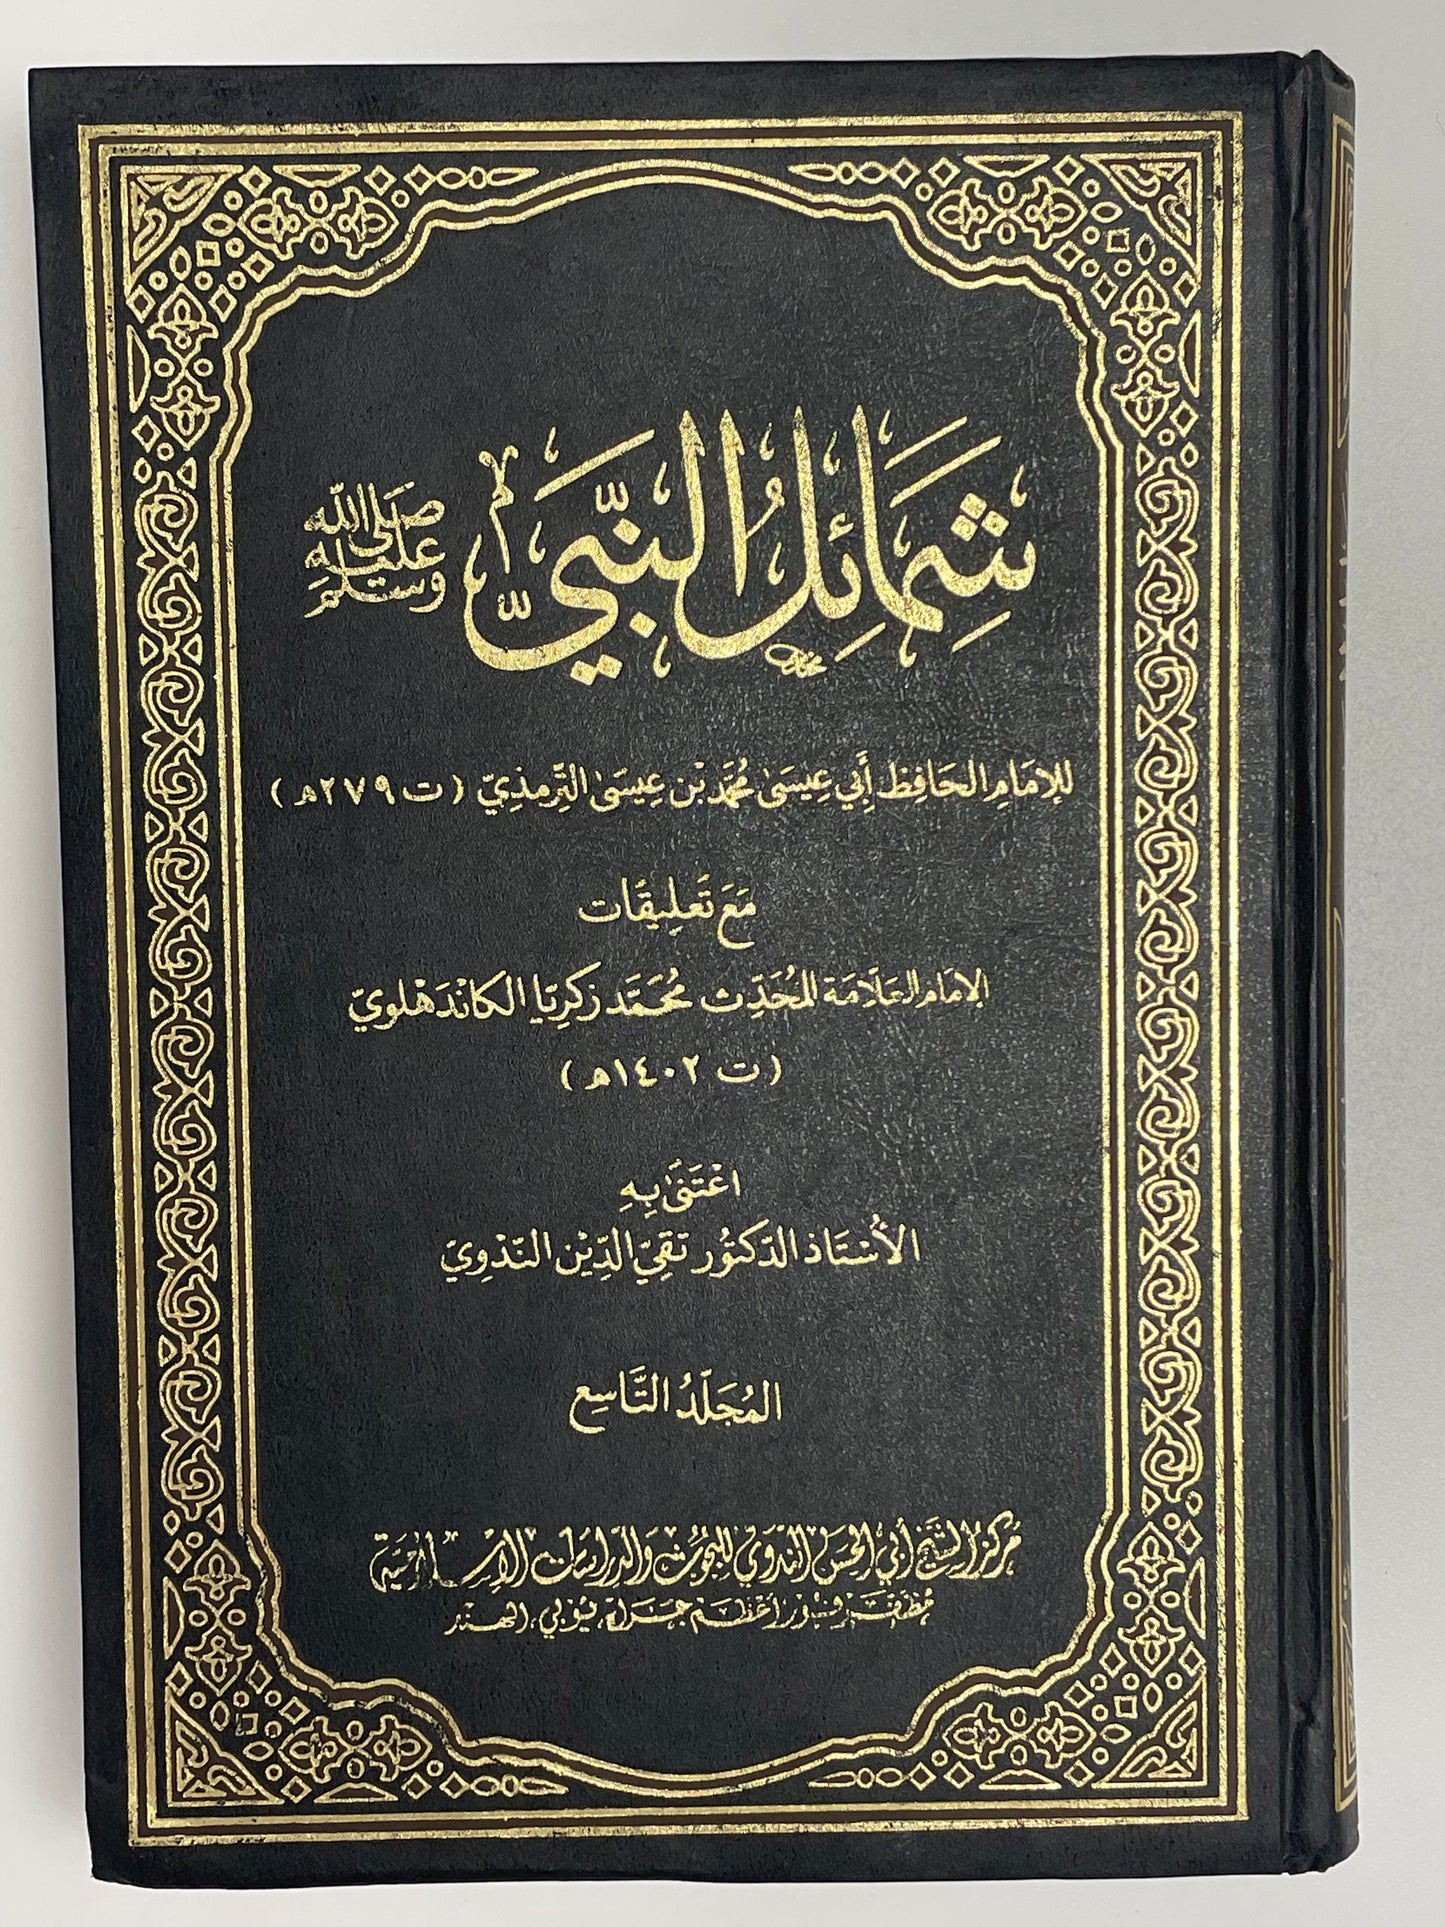 شَمَائِلُ النَّبِيِّ صَلَّى اللّٰه عَلَيْهِ وَسَلَّمَ
للإمَامِ الحَافِظ أَبِي عِيسَى مُحَمَّد بْن عِيسَى التِّرمذِيّ (ت ٢٧٩هـ)
مَعَ تَعلِيقَات
الإمَام العَلّامَة المُحَدِّث مُحَمَّد زكَرِيّا الكَانْدَهْلَوِيّ
(ت ١٤٠٢هـ)
اعْتَنَى بِهِ
الأُسْتَاذ الدّكتُور تَقِيّ الدِّيْن النّدْوِيّ
المُجَلّدُ التَّاسِع
مركز الشيخ أبي الحسن الندوي للبحوث والدراسات الإسلامية
مظفر فور، أعظم جراه، يوبي، الهند